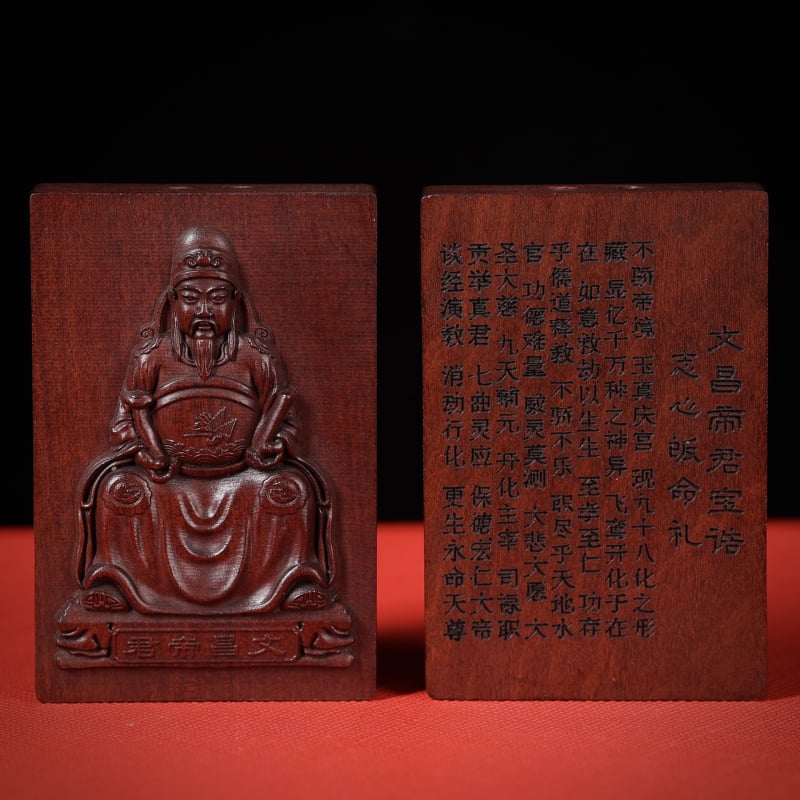 文昌帝君
文昌帝君宝诰
志心皈命礼
不骄帝境 玉真庆宫 现九十八化之形
藏 显亿千万种之神异 飞鸾开化于在
在 如意救劫以生生 至孝至仁 功存
乎儒道释教 不骄不乐 职尽乎天地水
官 功德难量 威灵莫测 大悲大愿 大
圣大慈 九天辅元 开化主宰 司禄职
贡举真君 七曲灵应 保德宏仁大帝
谈经演教 消劫行化 更生永命天尊